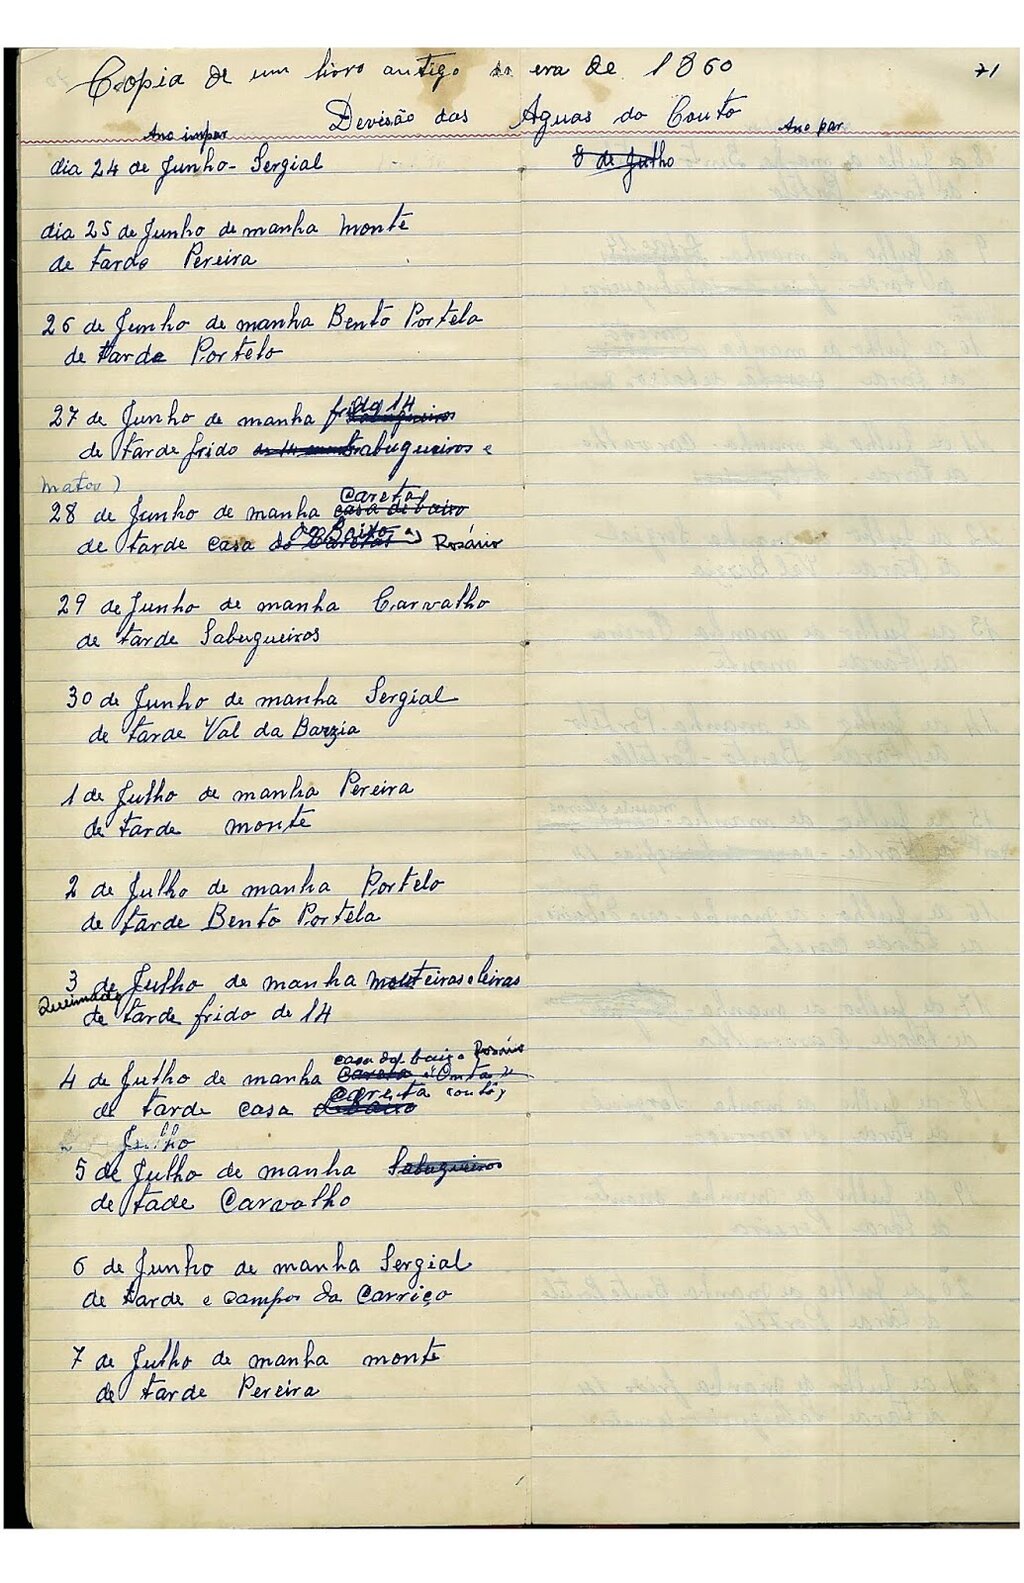 Copia de um livro antigo da era de 1860
71
Devisão das Aguas do Couto
Ano impar
Ano par
dia 24 de Junho - Sergial
8 de Julho
dia 25 de Junho de manha Monte
de tarde Pereira
26 de Junho de manha Bento Portela
de tarde Portelo
do 14
27 de Junho de manha frido Sabugueiros
de tarde frido Sabugueiros e
matos)
Careta
28 de Junho de manha casa de baixo
de Baixo
de tarde casa do Caretas Rosário
29 de Junho de manha Carvalho
de tarde Sabugueiros
30 de Junho de manha Sergial
de tarde Val da Barzia
1 de Julho de manha Pereira
de tarde monte
2 de Julho de manha Portelo
de tarde Bento Portela
3 de Julho de manha monteiras e leiras
Queimado
de tarde frido de 14
casa de baixo Rosário
4 de Julho de manha Careta
Careta
de tarde casa de baixo
Julho
5 de Julho de manha Sabugueiros
de tade Carvalho
6 de Junho de manha Sergial
de tarde e campos da Carriço
7 de Julho de manha monte
de tarde Pereira